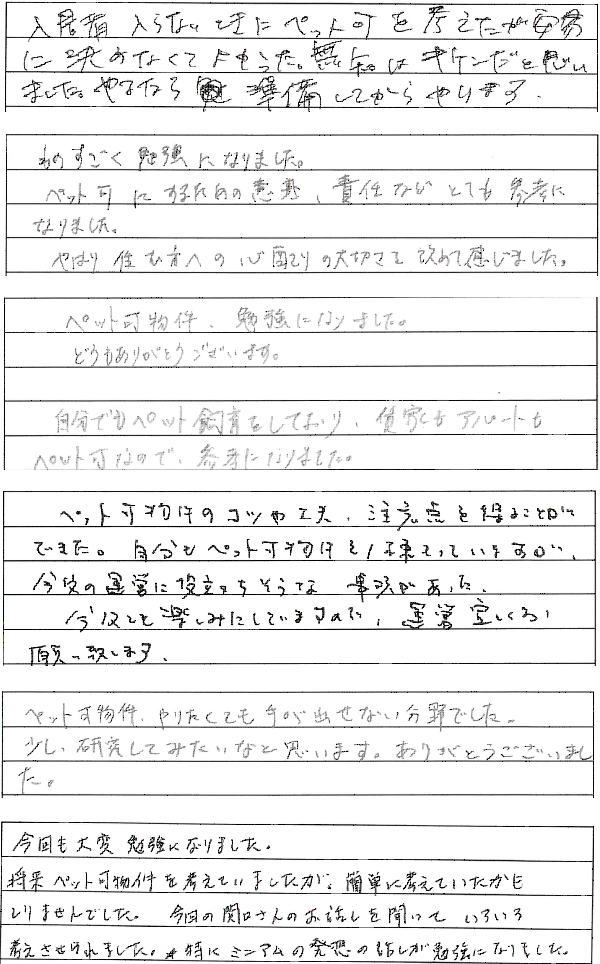 入居者 入らないときにペット可を考えたが安易
に決めなくてよかった。無知はキケンだと思い
ました。やるなら準備してからやります。
ものすごく勉強になりました。
ペット可にするための意義、責任などとても参考に
なりました。
やはり住む方への心配りの大切さを改めて感じました。
ペット可物件、勉強になりました。
どうもありがとうございます。
自分でもペット飼育をしており、借家もアパートも
ペット可なので、参考になりました。
ペット可物件のコツや工夫、注意点を得ることが
できた。自分もペット可物件を1棟もっていますが、
今後の運営に役立ちそうな事項があった。
今後とも楽しみにしていますので、運営宜しくお
願い致します。
ペット可物件、やりたくても手が出せない分野でした。
少し、研究してみたいなと思います。ありがとうございまし
た。
今回も大変勉強になりました。
将来ペット可物件を考えていましたが、簡単に考えていたかも
しりませんでした。今日の関口さんのお話しを聞いていろいろ
考えさせられました。特にミニアムの発想の話しが勉強になりました。